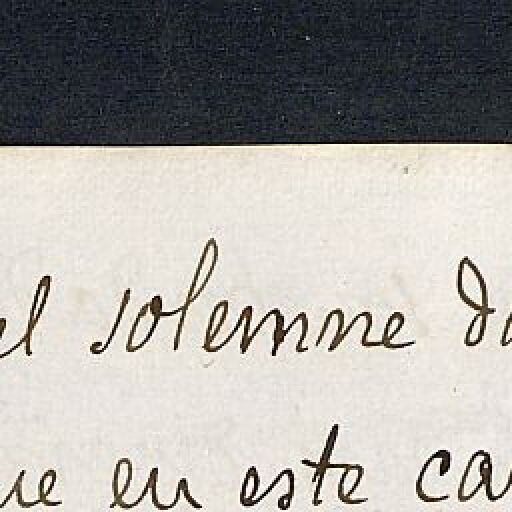 el solemne do
ue en este ca